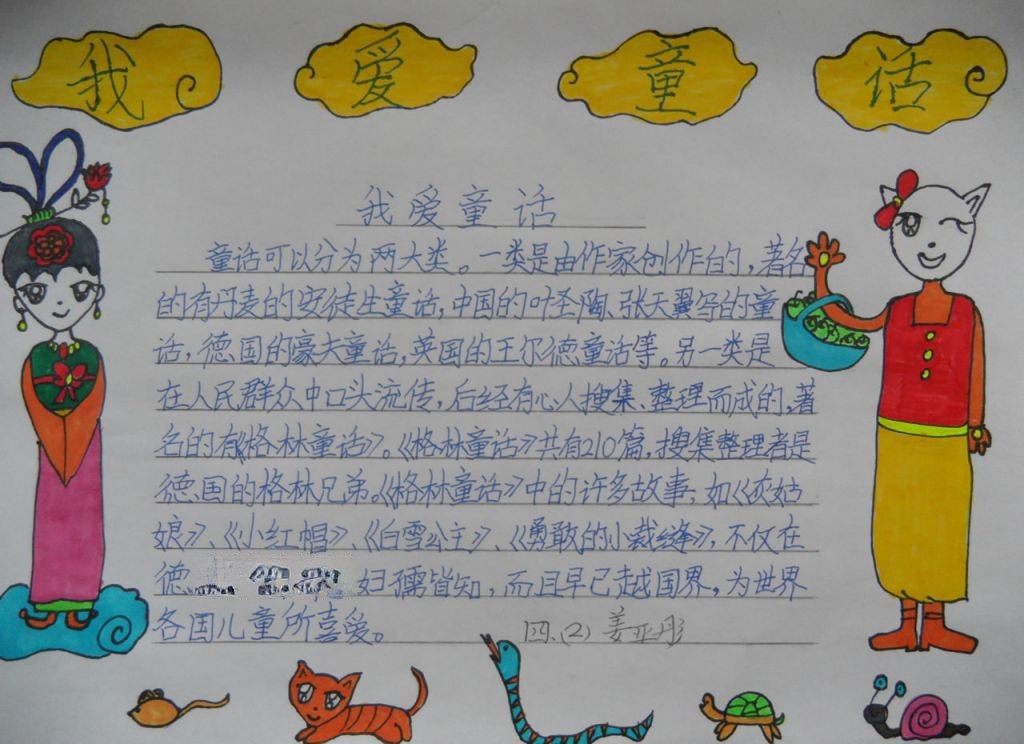 我 爱 童 话
我爱童话
童话可以分为两大类。一类是由作家创作的,著名
的有丹麦的安徒生童话,中国的叶圣陶、张天翼写的童
话,德国的豪夫童话,英国的王尔德童话等。另一类是
在人民群众中口头流传,后经有心人搜集、整理而成的,著
名的有《格林童话》。《格林童话》共有210篇,搜集整理者是
德国的格林兄弟。《格林童话》中的许多故事,如《灰姑
娘》、《小红帽》、《白雪公主》、《勇敢的小裁缝》,不仅在
德 妇孺皆知,而且早已越国界,为世界
各国儿童所喜爱。 四、(2) 姜亚彤